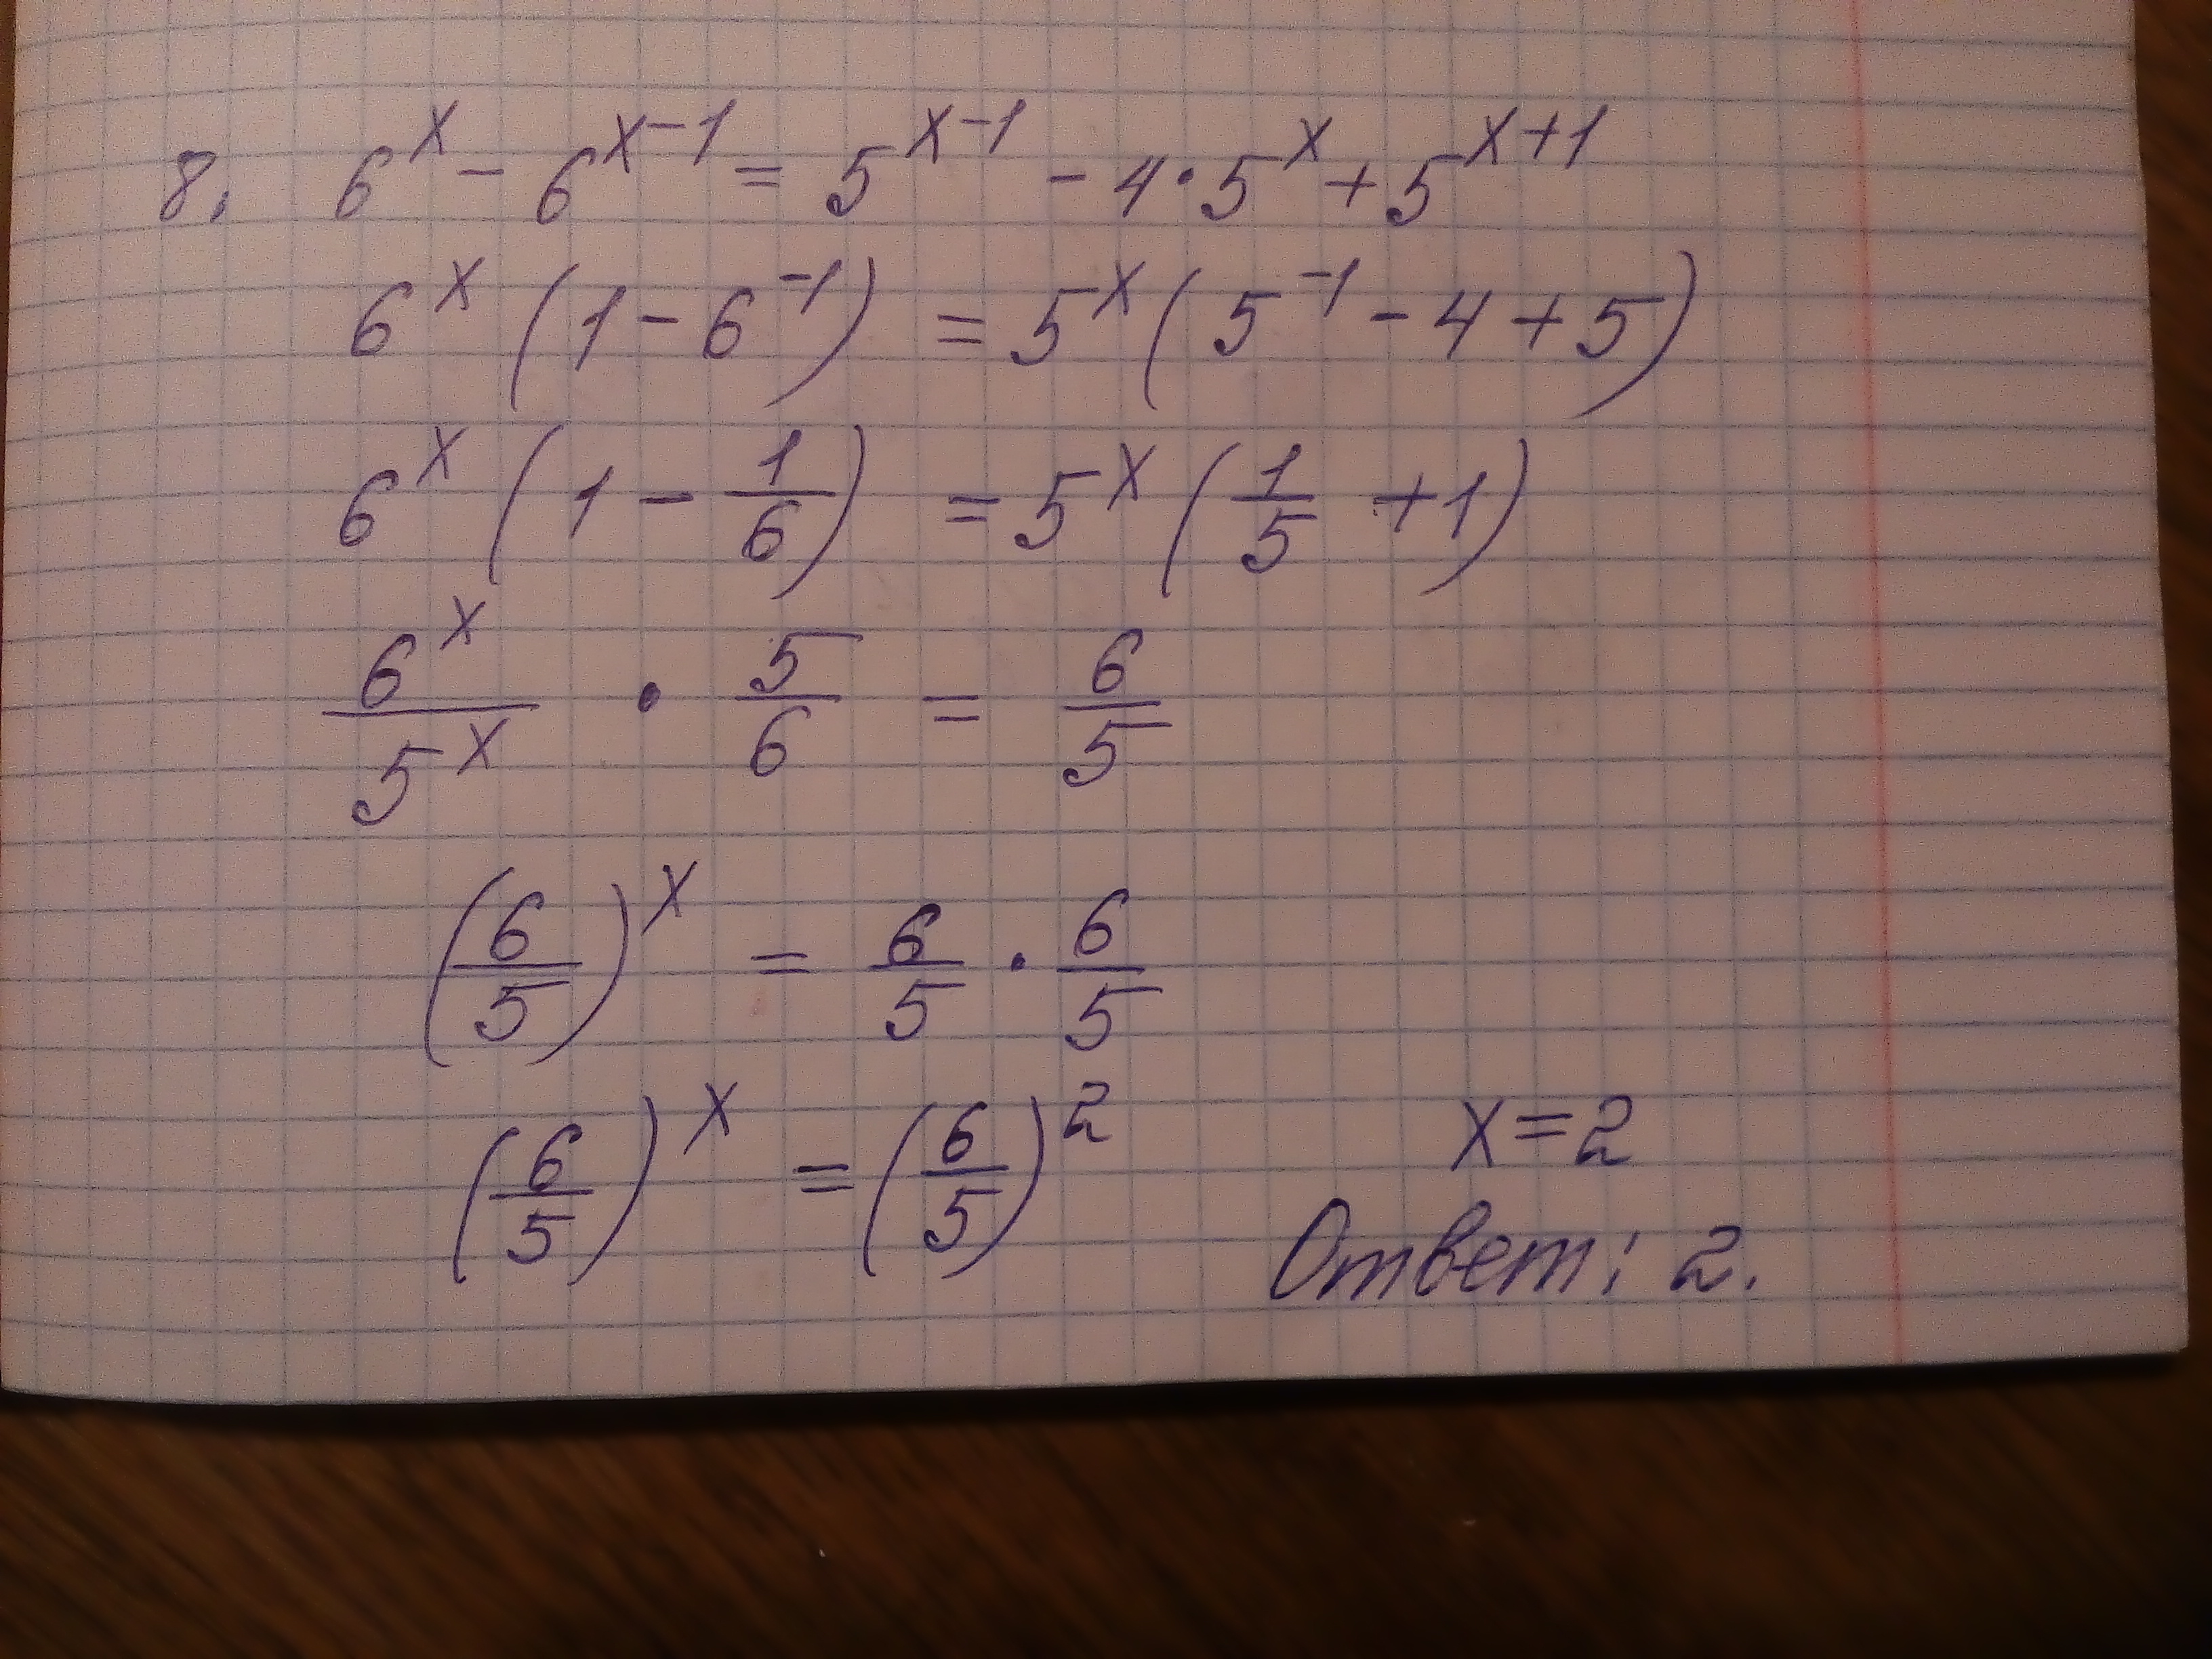 8. 6^x - 6^{x-1} = 5^{x-1} - 4·5^x + 5^{x+1}
6^x (1 - 6^{-1}) = 5^x (5^{-1} - 4 + 5)
6^x (1 - \frac{1}{6}) = 5^x (\frac{1}{5} + 1)
\frac{6^x}{5^x} · \frac{5}{6} = \frac{6}{5}
(\frac{6}{5})^x = \frac{6}{5} · \frac{6}{5}
(\frac{6}{5})^x = (\frac{6}{5})^2 x=2
Ответ: 2.